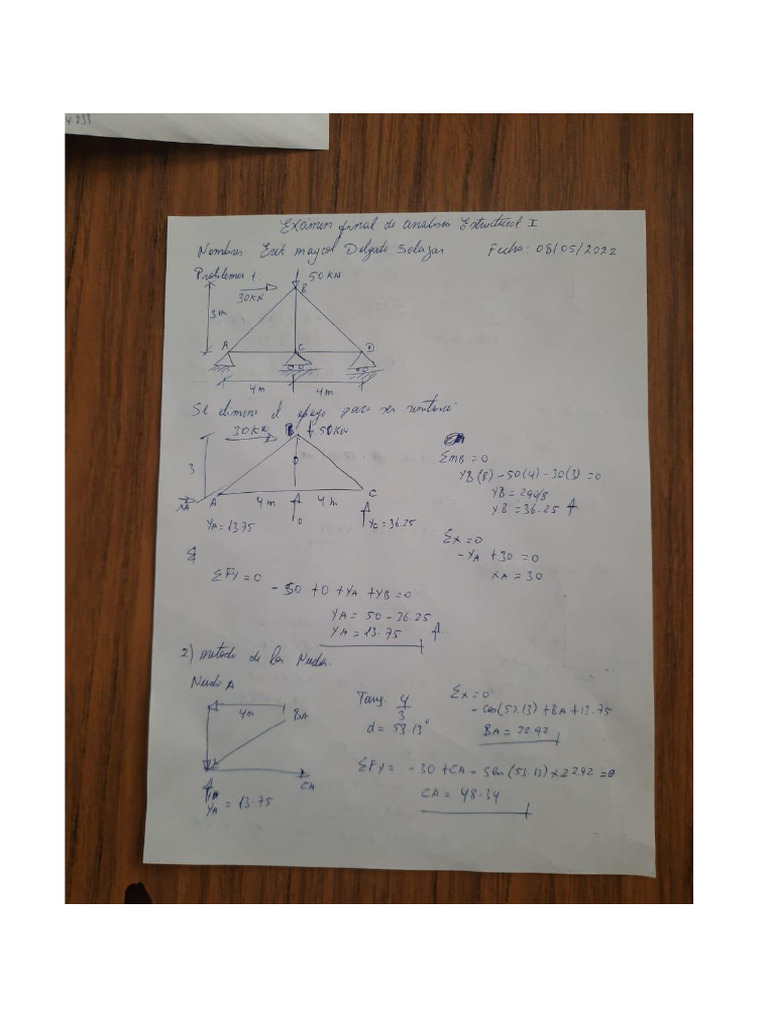 4.233
Exámen final de analisis Estructural I
Nombres: Erik maycol Delgado Salazar Fecha: 08/05/2022
Problema 1:
50 KN
30KN
B
3m
A C D
4m 4m
Se elimino el apoyo para ser
30KN B 50KN
3 0
XA A 4m 4m C
0
YA = 13.75 Yc = 36.25
ΣmB = 0
YB(8) - 50(4) - 30(3) = 0
YB = 290/8
YB = 36.25
Σx = 0
- XA + 30 = 0
XA = 30
Σ
ΣFY = 0
- 50 + 0 + YA + YB = 0
YA = 50 - 36.25
YA = 13.75
2) metodo de los Nudos.
Nudo A
4m BA
CA
YA = 13.75
Tang 4/3
d = 53.13°
Σx = 0
- cos(53.13) + BA + 13.75
BA = 22.92
ΣFY = - 30 + CA - sen(53.13) x 22.92 = 0
CA = 48.34